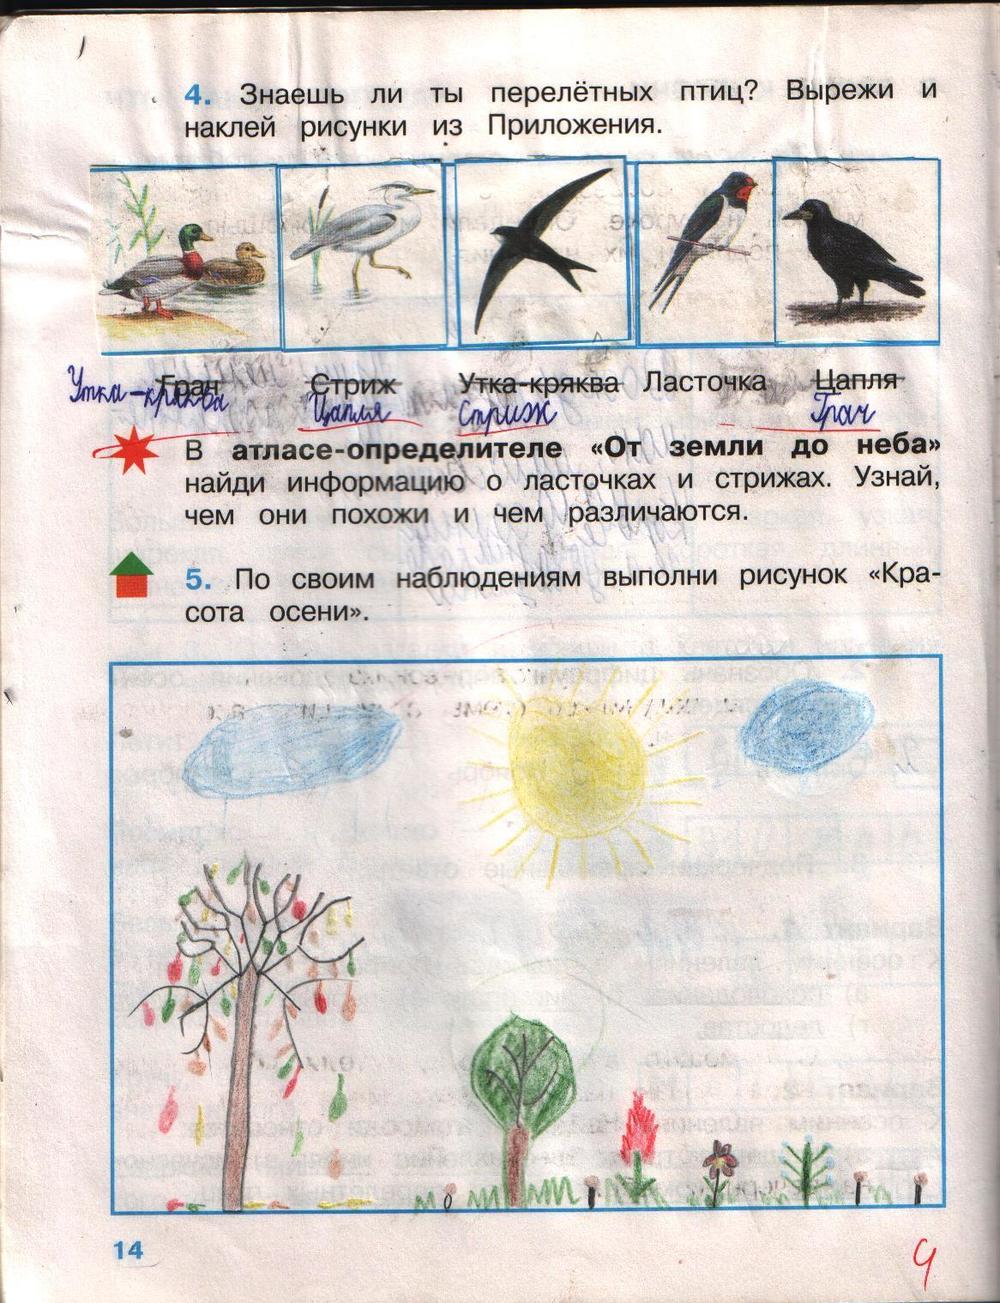 4. Знаешь ли ты перелётных птиц? Вырежи и
наклей рисунки из Приложения.
Грач Стриж Утка-кряква Ласточка Цапля
Утка-кряква Цапля Стриж Грач
В атласе-определителе «От земли до неба»
найди информацию о ласточках и стрижах. Узнай,
чем они похожи и чем различаются.
5. По своим наблюдениям выполни рисунок «Кра-
сота осени».
14
4